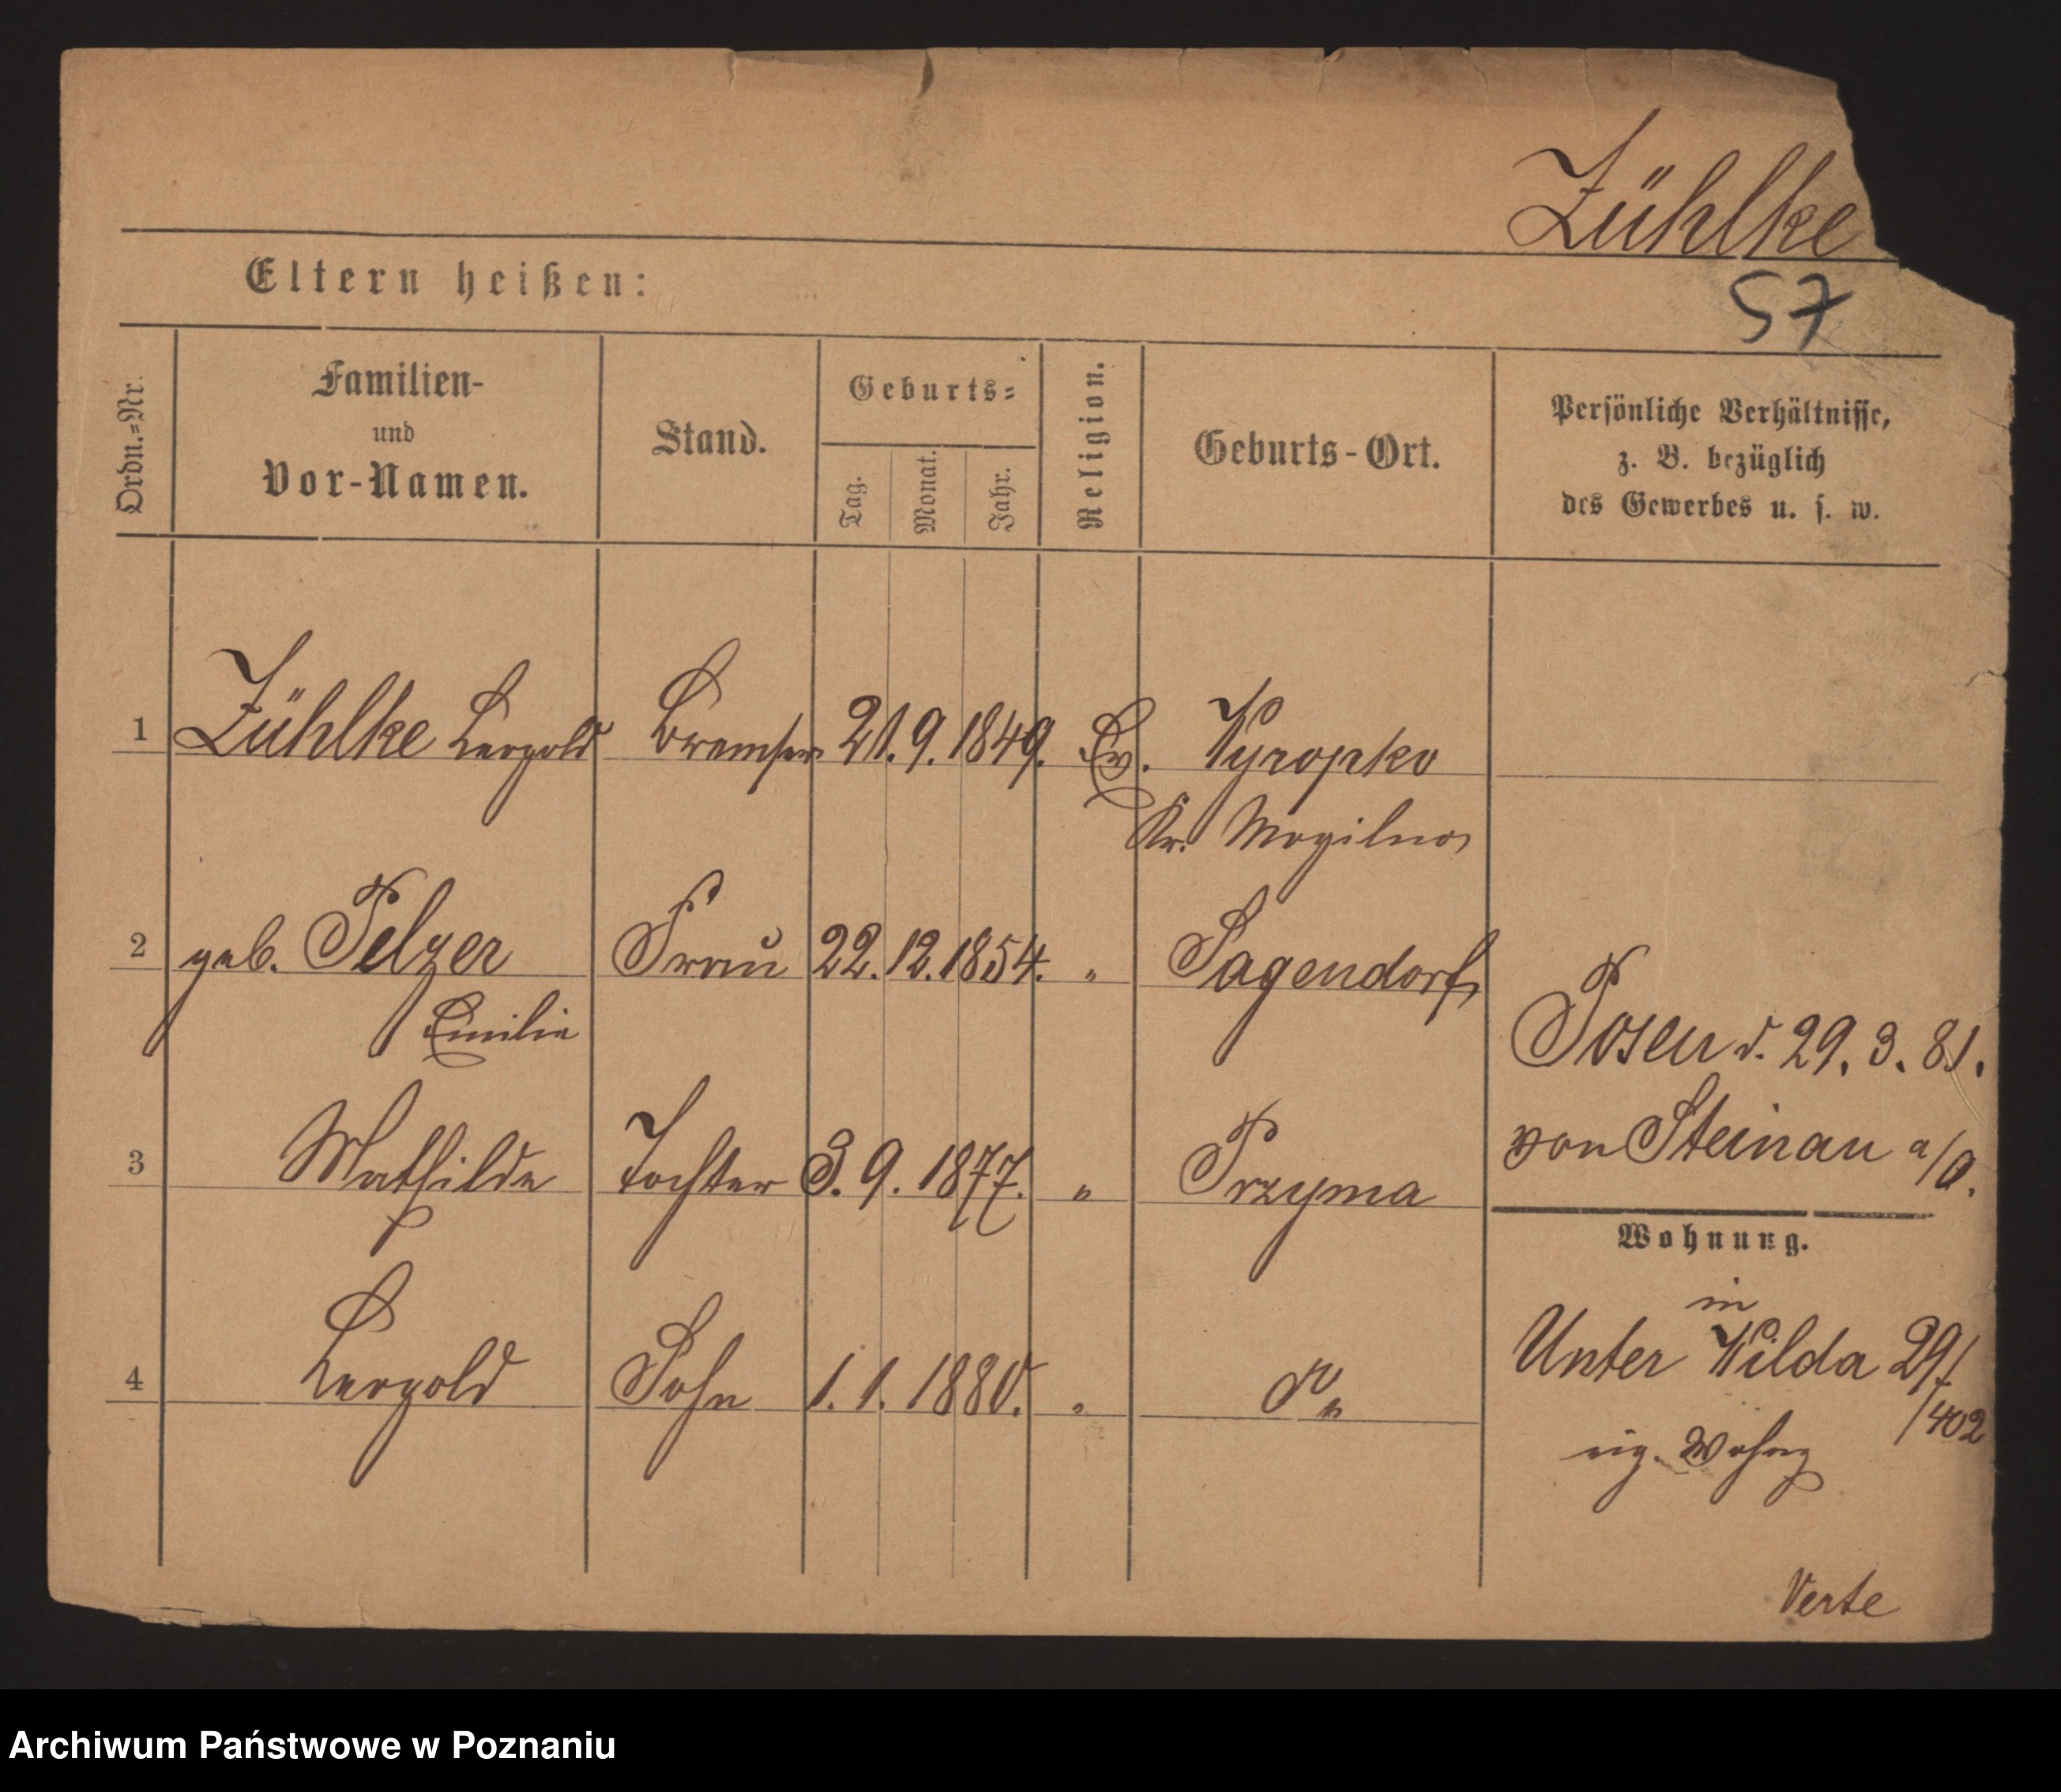 Zühlke
57
Eltern heißen:
Ordn.=Nr.
Familien-
und
Vor-Namen.
Stand.
Geburts=
Tag.
Monat.
Jahr.
Religion.
Geburts-Ort.
Persönliche Verhältnisse,
z. B. bezüglich
des Gewerbes u. s. w.
1 Zühlke Leopold Bremser 21. 9. 1849. Ev.
Kr. Mogilno
2 geb. Pelzer Frau 22. 12. 1854. " Sagendorf
Emilie
Posen d. 29. 3. 81.
von Steinau a/O.
3 Mathilde Tochter 3. 9. 1877. " Przyma
Wohnung.
in
4 Leopold Sohn 1. 1. 1880. "
Unter Wilda 29/
/402
eig. Wohng
Verte
Archiwum Państwowe w Poznaniu